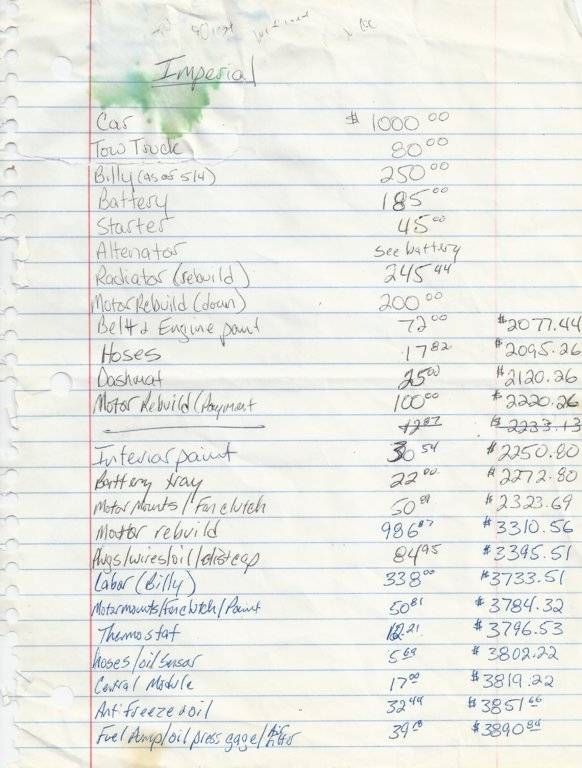 Imperial
Car $ 1000 00
Tow Truck 80 00
Billy (as of 5/4) 250 00
Battery 185 00
Starter 45 00
Alternator see battery
Radiator (rebuild) 245 44
Motor Rebuild (down) 200 00
Belt & Engine paint 72 00 $2077.44
Hoses 17 82 $2095.26
Dashmat 25 00 $2120.26
Motor Rebuild (Payment 100 00 $2220.26
12 87 $2233.13
Interior paint 30 54 $2250.80
Battery tray 22 00 $2272.80
Motor Mounts / Fan clutch 50 89 $2323.69
Motor rebuild 986 87 $3310.56
Plugs/wires/oil/dist cap 84 95 $3395.51
Labor (Billy) 338 00 $3733.51
Motor mounts/Fan clutch/Paint 50 81 $3784.32
Thermostat 12.21 $3796.53
hoses/oil sensor 5 69 $3802.22
Control Module 17 00 $3819.22
Antifreeze & oil 32 44 $3851 66
Fuel Pump/oil press gage/Air Filter 39 $3890